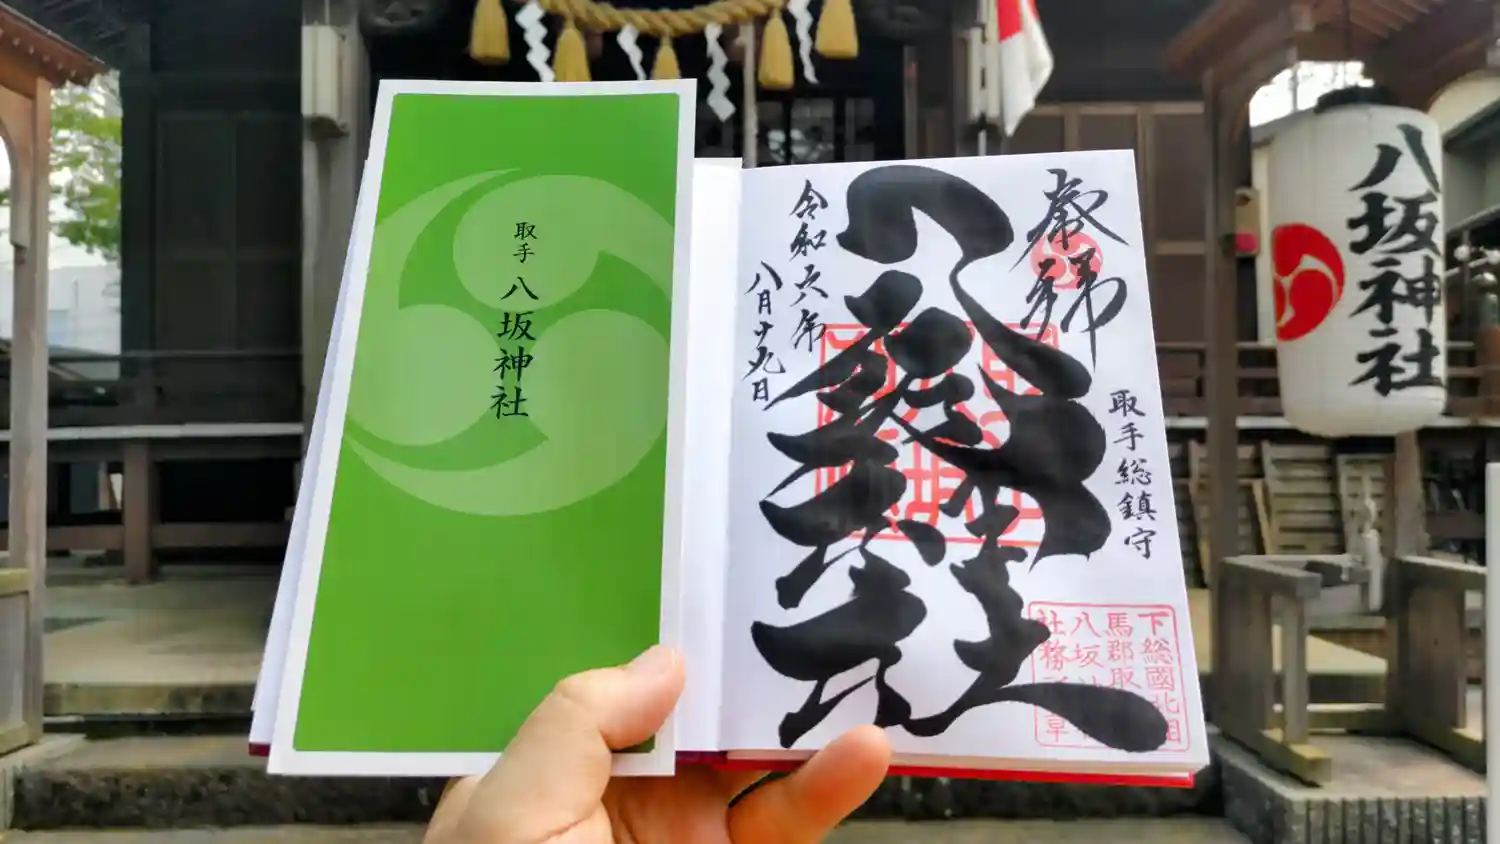 取手
八坂神社
奉拝
八坂神社
取手総鎮守
令和六年
八月十九日
下総國北相
馬郡取
八坂神
社務所
八坂神社